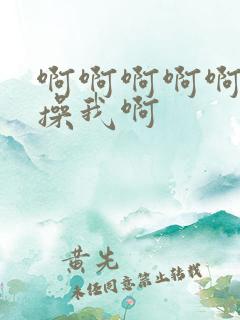 啊啊啊啊啊
操我啊
黄先
未经同意禁止转载